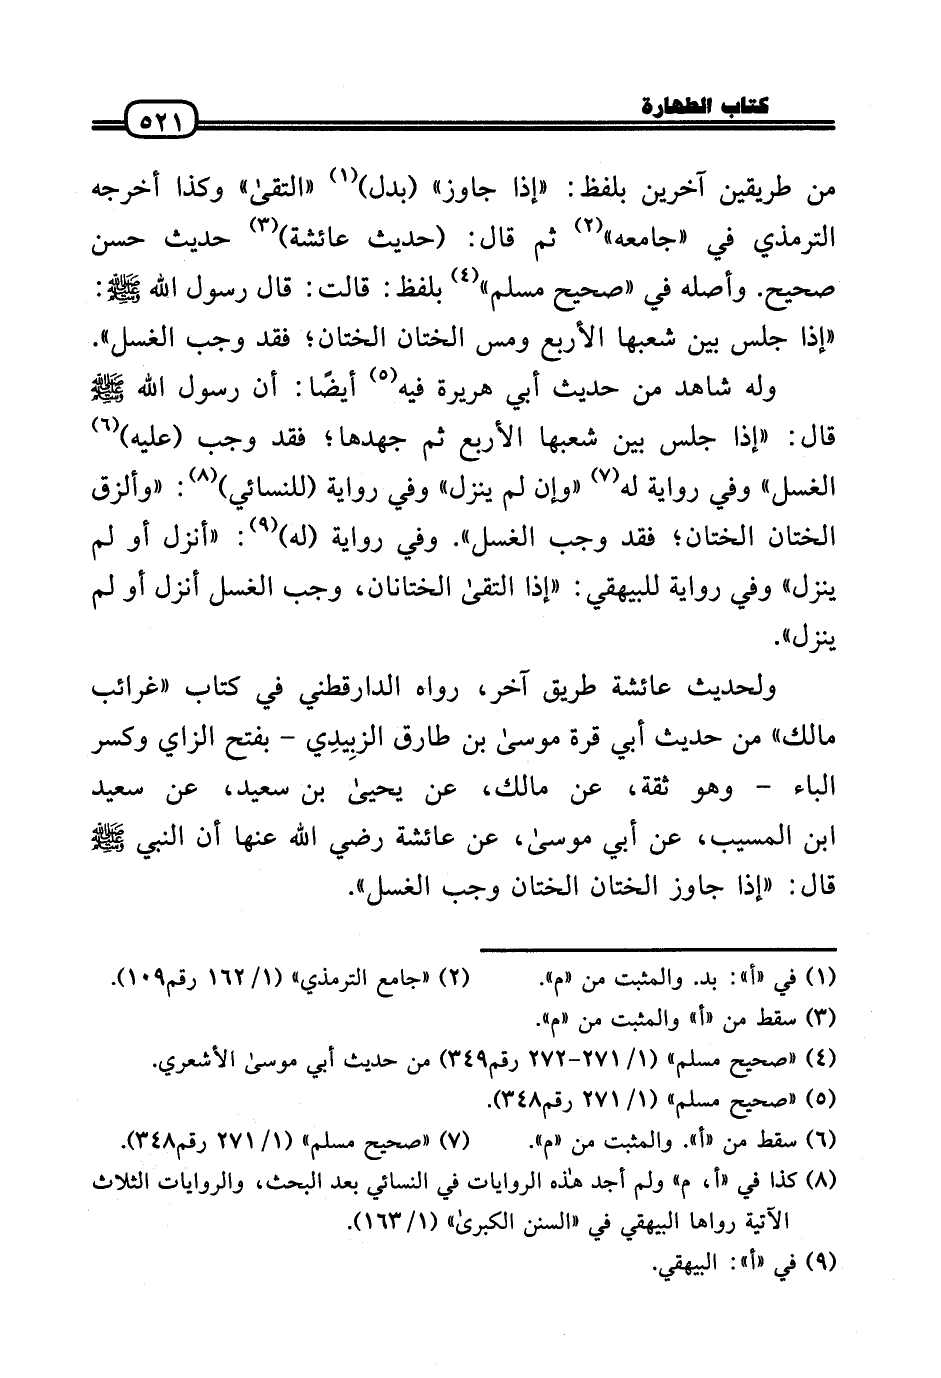 كتاب الطهارة
٥٢١
من طريقين آخرين بلفظ: «إذا جاوز» (بدل)(١) «التقىٰ» وكذا أخرجه
الترمذي في «جامعه»(٢) ثم قال: (حديث عائشة)(٣) حديث حسن
صحيح. وأصله في «صحيح مسلم»(٤) بلفظ: قالت: قال رسول الله ﷺ:
«إذا جلس بين شعبها الأربع ومس الختان الختان؛ فقد وجب الغسل».
وله شاهد من حديث أبي هريرة فيه(٥) أيضًا: أن رسول الله ﷺ
قال: «إذا جلس بين شعبها الأربع ثم جهدها؛ فقد وجب (عليه)(٦)
الغسل» وفي رواية له(٧) «وإن لم ينزل» وفي رواية (للنسائي)(٨): «وألزق
الختان الختان؛ فقد وجب الغسل». وفي رواية (له)(٩): «أنزل أو لم
ينزل» وفي رواية للبيهقي: «إذا التقىٰ الختانان، وجب الغسل أنزل أو لم
ينزل».
ولحديث عائشة طريق آخر، رواه الدارقطني في كتاب «غرائب
مالك» من حديث أبي قرة موسىٰ بن طارق الزبِيدِي - بفتح الزاي وكسر
الباء - وهو ثقة، عن مالك، عن يحيىٰ بن سعيد، عن سعيد
ابن المسيب، عن أبي موسىٰ، عن عائشة رضي الله عنها أن النبي ﷺ
قال: «إذا جاوز الختان الختان وجب الغسل».
(١) في «أ»: بد. والمثبت من «م». (٢) «جامع الترمذي» (١/ ١٦٢ رقم١٠٩).
(٣) سقط من «أ» والمثبت من «م».
(٤) «صحيح مسلم» (١/ ٢٧١-٢٧٢ رقم٣٤٩) من حديث أبي موسىٰ الأشعري.
(٥) «صحيح مسلم» (١/ ٢٧١ رقم٣٤٨).
(٦) سقط من «أ». والمثبت من «م». (٧) «صحيح مسلم» (١/ ٢٧١ رقم٣٤٨).
(٨) كذا في «أ، م» ولم أجد هٰذه الروايات في النسائي بعد البحث، والروايات الثلاث
الآتية رواها البيهقي في «السنن الكبرىٰ» (١/ ١٦٣).
(٩) في «أ»: البيهقي.